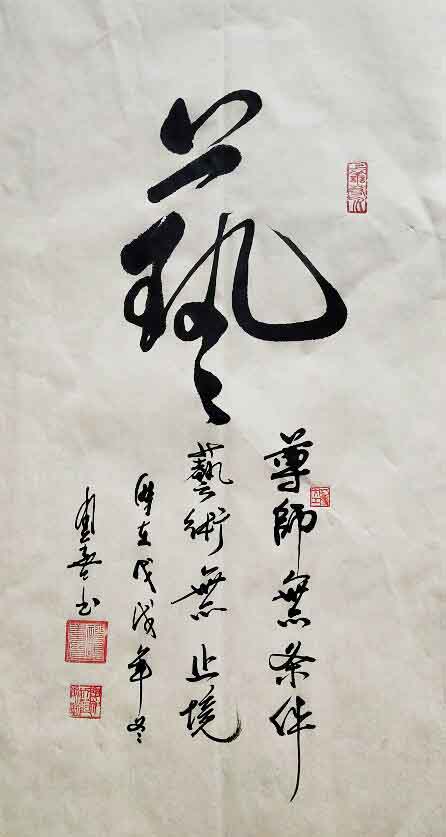 藝
尊師無条件
藝術無止境
歲在戊戌年冬
書